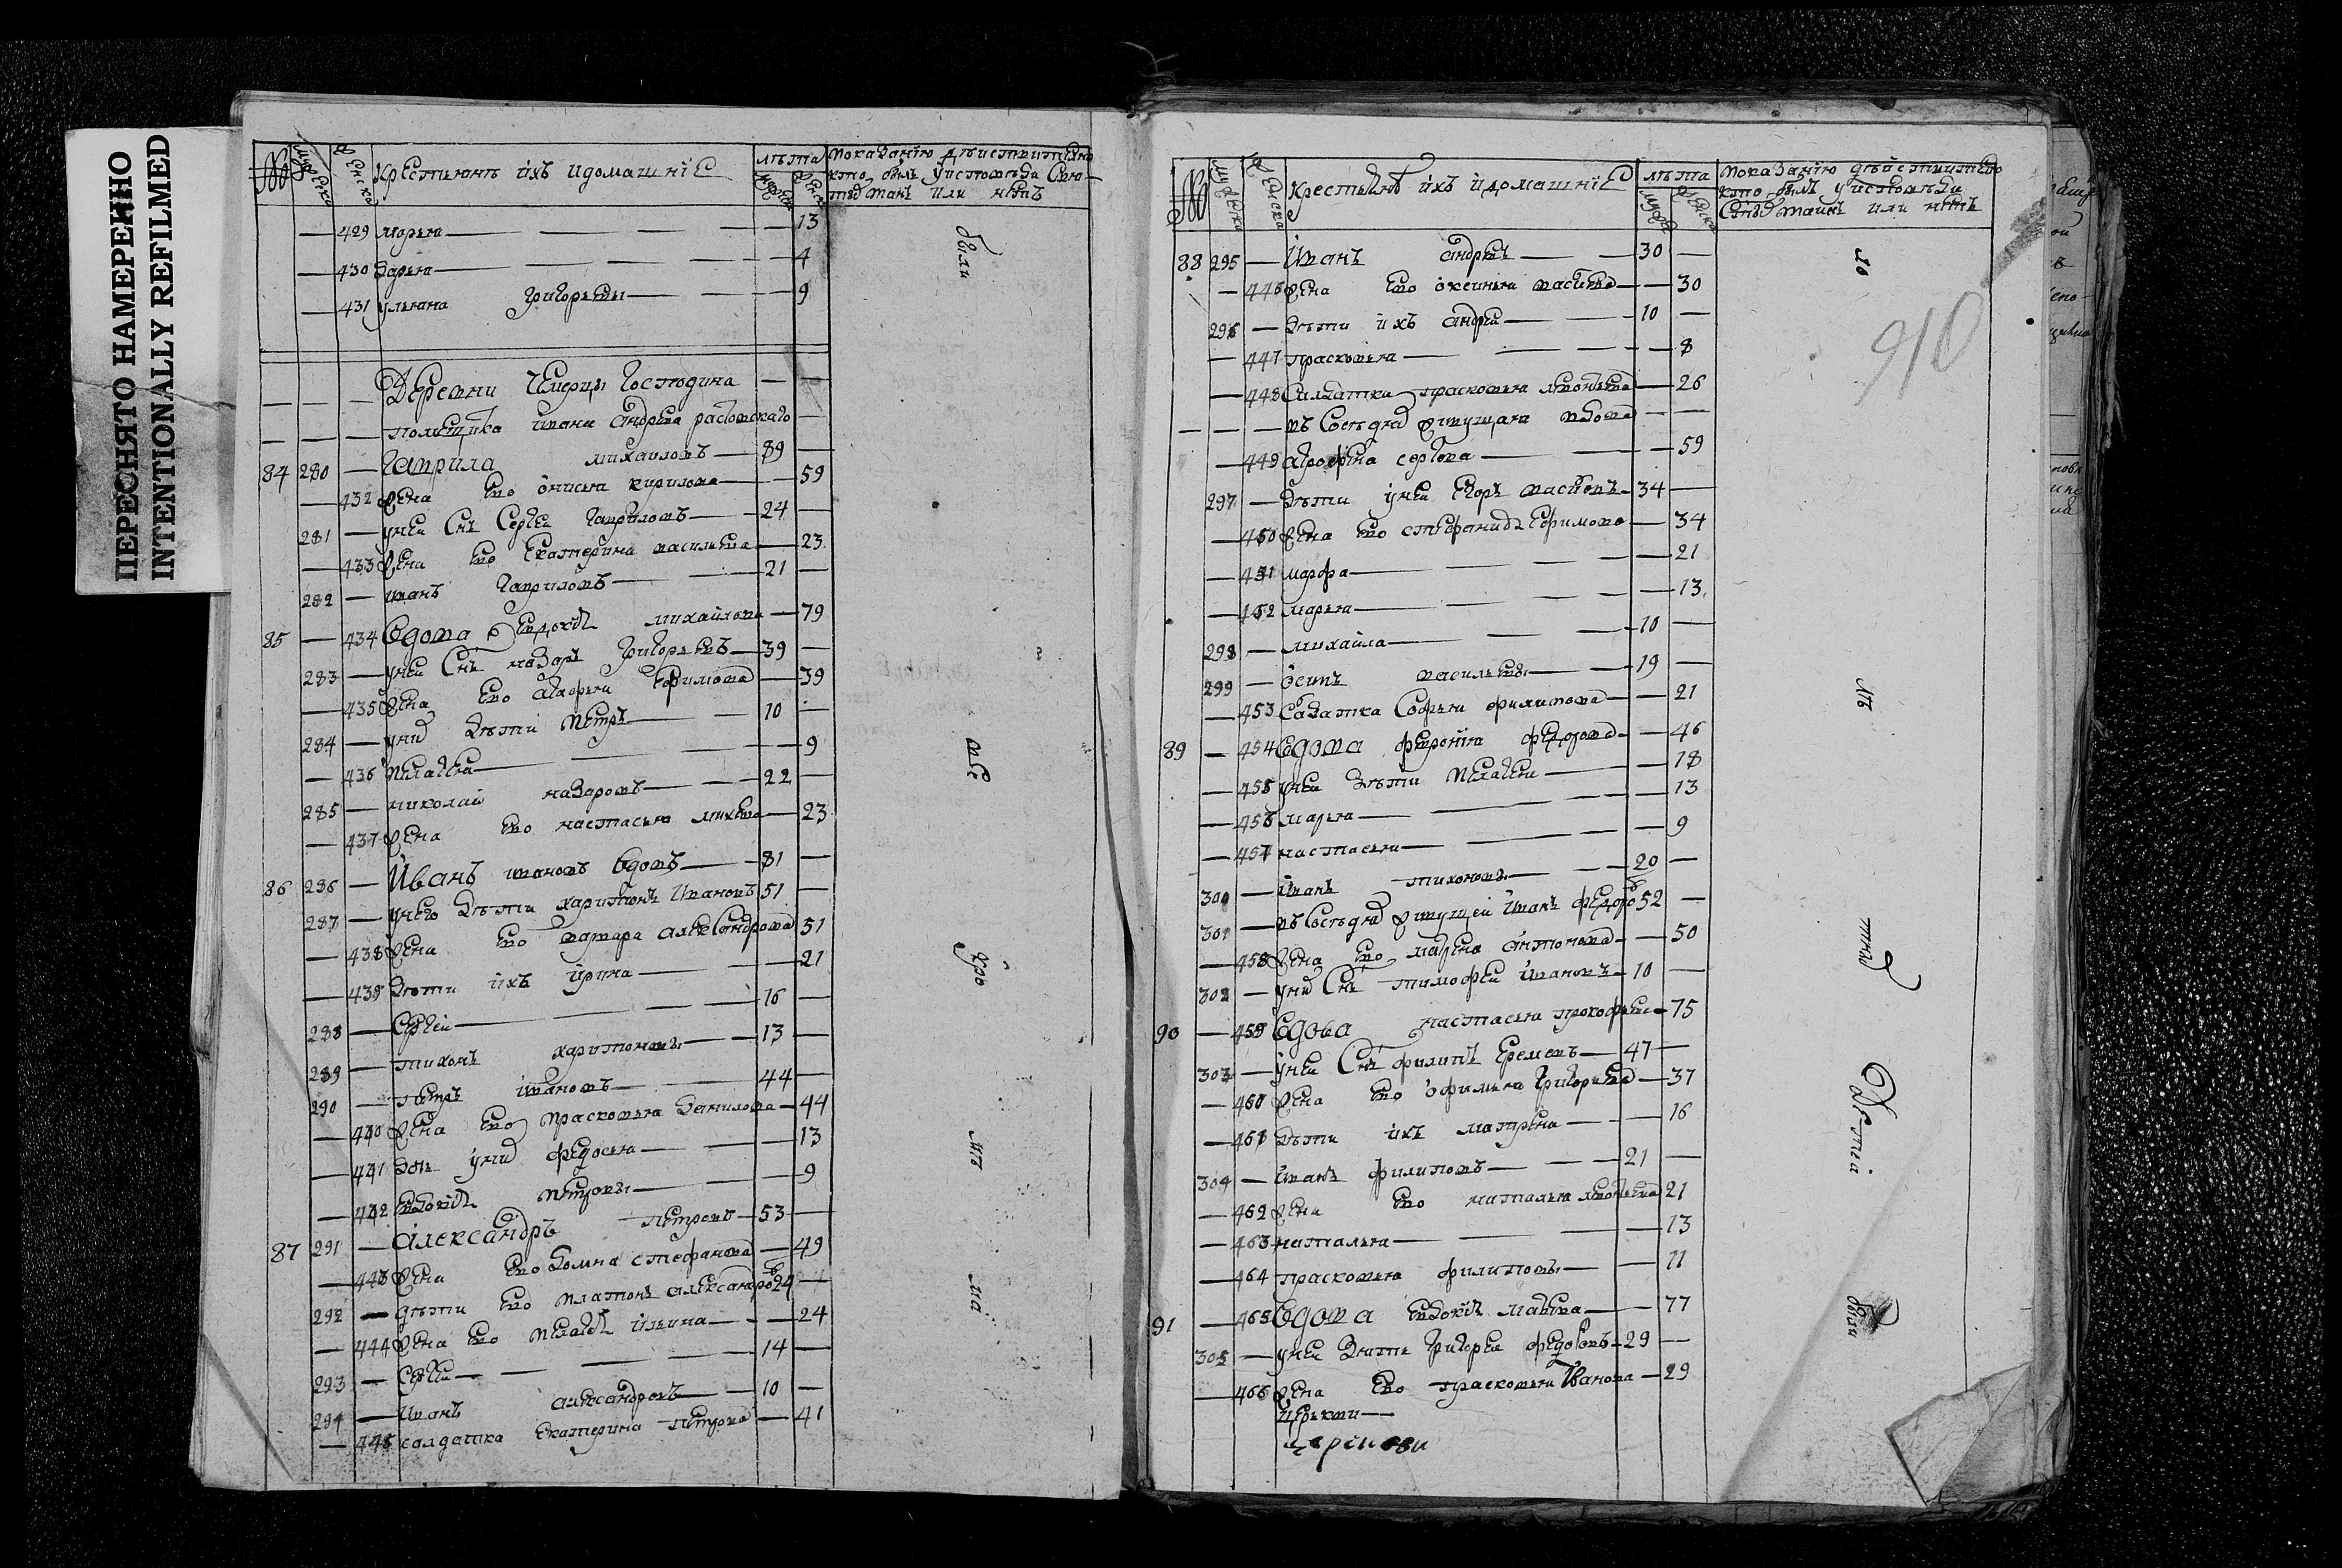 ПЕРЕСНЯТО НАМЕРЕННО
INTENTIONALLY REFILMED
№ мужеска женска Крестьянъ ихъ идомашнiе лѣта мужеска женска
показанiю дѣиствительно
кто былъ уисповѣди Свя-
тыхъ таинъ или нѣтъ
— 429 марья — — 13
— 430 дарья — — 4
— 431 ульяна Григорьевы — — 9
Деревни Господина — —
помещика ивана Андреева —
84 280 — Гаврила михаиловъ — 89 —
— 432 жена ево онисья кирилова — — 59
281 — унеи Снъ Сергеи Гавриловъ — 24 —
— 433 жена ево Екатерина васильева — 23
282 — иванъ Гавриловъ — 21 —
85 — 434 Вдова Евдокiя михайлова — 79
283 — унеи Снъ назаръ Григорьевъ — 39 —
— 435 жена ево агафья Ефимова — 39
284 — унихъ дѣти Петръ — 10 —
— 436 Пелагея — — 9
285 — николай назаровъ — 22 —
— 437 жена ево настасья михеева — 23
86 286 — Иванъ ивановъ вдовъ — 81 —
287 — унего дѣти харитонъ Ивановъ 51 —
— 438 жена ево варвара александрова 51
— 439 дѣти ихъ ирина — — 21
288 — Сергеи — 16 —
289 — тихонъ харитоновы — 13 —
290 — петръ ивановъ — 44 —
— 440 жена ево Прасковья данилова — 44
— 441 дѣти унихъ федосья — — 13
— 442 Евдокiя петровы — — 9
87 291 — Александръ петровъ — 53 —
— 443 жена ево домна стефанова — 49
292 — дѣти ево платонъ александровъ 24 —
— 444 жена ево пелагея ильина — — 24
293 — Сергеи — 14 —
294 — Иванъ александровъ — 10 —
— 445 солдатка Екатерина петрова — 41
были
все
ма
910
№ мужеска женска Крестьянъ ихъ идомашнiе лѣта мужеска женска
показанiю дѣиствительно
кто былъ уисповѣди
Святыхъ таинъ или нѣтъ
88 295 — Иванъ андреевъ — 30 —
— 446 жена ево оксинья васильева — — 30
296 — дѣти ихъ андреи — 10 —
— 447 прасковья — — 8
— 448 Салдатка прасковья леонтьева — 26
— — — въ Соседяхъ живущая вдова — —
— 449 агрофена сергеева — — 59
297 — дѣти унеи Егоръ васильевъ — 34 —
— 450 жена ево стефанида Ефимова — 34
— 451 марфа — — 21
— 452 марья — — 13
298 — михайла — 10 —
299 — осипъ васильевы — 19 —
— 453 Салдатка Софья филипова — 21
89 — 454 Вдова феронiя федорова — 46
— 455 унеи дѣти Пелагея — — 18
— 456 марья — — 13
— 457 настасья — — 9
300 — иванъ тихоновы — 20 —
301 — въ Соседяхъ живущеи Иванъ федоровъ 52 —
— 458 жена ево марина антонова — 50
302 — унихъ Снъ тимофеи Ивановъ — 10 —
90 — 459 Вдова настасья прокофьева — 75
303 — унеи Снъ филипъ Еремеевъ — 47 —
— 460 жена ево офимья Григорьева — 37
— 461 дѣти ихъ матрена — — 16
304 — иванъ филиповъ — 21 —
— 462 жена ево наталья леонтьева 21
— 463 наталья — — 13
— 464 прасковья филиповы — — 11
91 — 465 Вдова Евдокiя матвеева — 77
305 — унеи зять Григореи федоровъ — 29 —
— 466 жена ево прасковья Иванова — 29
были